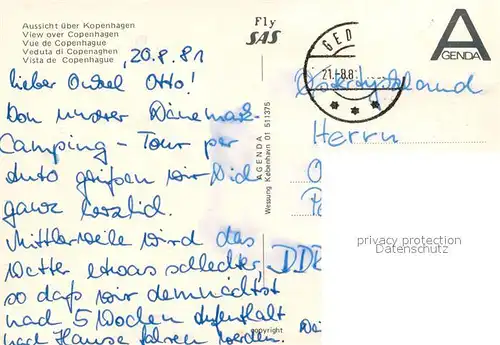 Aussicht über Kopenhagen
View over Copenhagen
Vue de Copenhague
Veduta di Copenaghen
Vista de Copenhague
Fly
SAS
A
AGENDA
GED
21.-8.8
, 20.8.81
lieber Onkel Otto!
Von unserer Dänemark-
Camping - Tour per
Auto grüßen wir Dich
ganz herzlich.
Mittlerweile wird das
Wetter etwas schlechter,
so daß wir demnächst
nach 5 Wochen Aufenthalt
nach Hause fahren werden.
AGENDA
Wessung København 01 511375
copyright
Herrn
O
DDR
privacy protection
DATENSCHUTZ